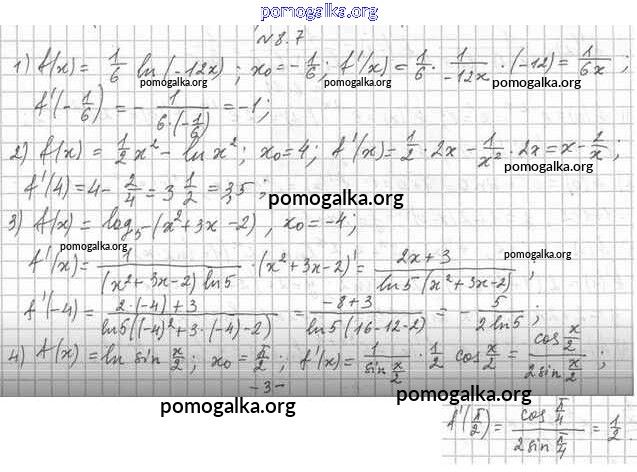 pomogalka.org
№ 8.7
1) f(x) = 1/6 ln(-12x); x₀ = -1/6; f'(x) = 1/6 · 1/-12x · (-12) = 1/6x;
pomogalka.org pomogalka.org
f'(-1/6) = - 1/6·(-1/6) = -1;
2) f(x) = 1/2 x² - ln x²; x₀ = 4; f'(x) = 1/2 · 2x - 1/x² · 2x = x - 2/x;
pomogalka.org
f'(4) = 4 - 2/4 = 3 1/2 = 3,5;
pomogalka.org
3) f(x) = log₅ (x² + 3x - 2), x₀ = -4;
pomogalka.org pomogalka.org
f'(x) = 1/(x² + 3x - 2) ln5 · (x² + 3x - 2)' = 2x + 3/ln5 (x² + 3x - 2);
f'(-4) = 2·(-4) + 3/ln5((-4)² + 3·(-4) - 2) = -8 + 3/ln5(16 - 12 - 2) = - 5/2 ln5;
4) f(x) = ln sin x/2; x₀ = π/2; f'(x) = 1/sin x/2 · 1/2 cos x/2 = cos x/2 / 2 sin x/2;
- 3 -
pomogalka.org pomogalka.org
f'(π/2) = cos π/4 / 2 sin π/4 = 1/2.
pomogalka.org